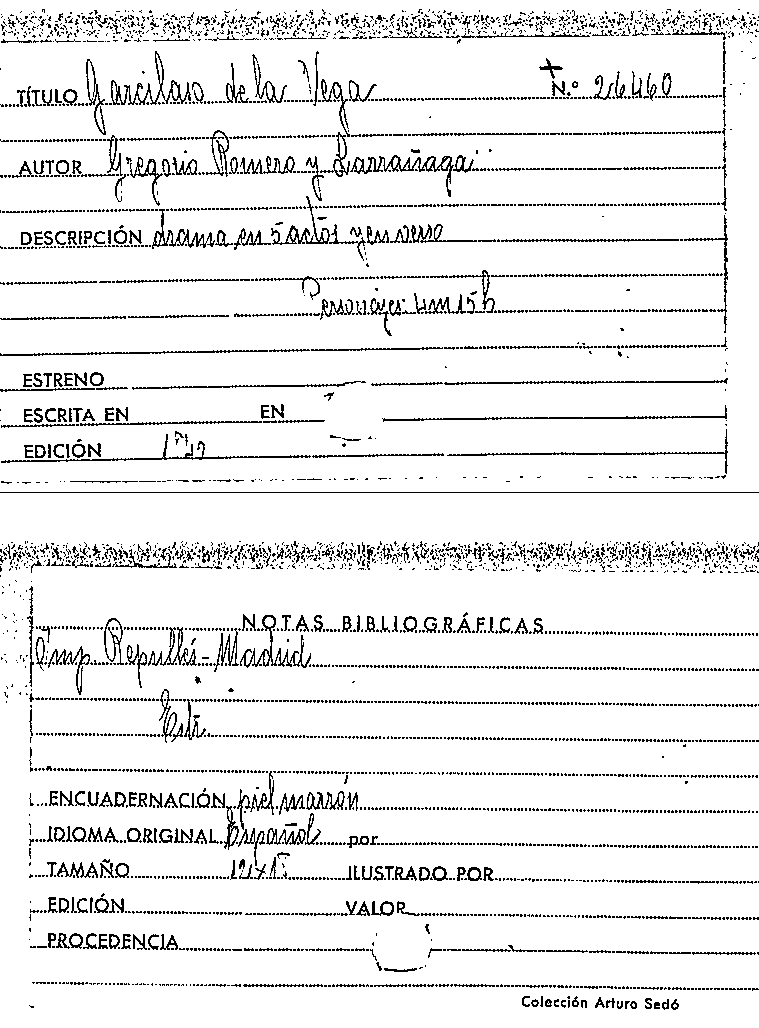 TÍTULO Garcilaso de la Vega N.º 26460
AUTOR Gregorio Romero y Larrañaga
DESCRIPCIÓN drama en 5 actos y en verso
Personajes: 4m 15h
ESTRENO
ESCRITA EN EN
EDICIÓN
NOTAS BIBLIOGRÁFICAS
Imp. Repullés - Madrid
ENCUADERNACIÓN piel marrón
IDIOMA ORIGINAL Español por
TAMAÑO ILUSTRADO POR
EDICIÓN VALOR
PROCEDENCIA
Colección Arturo Sedó